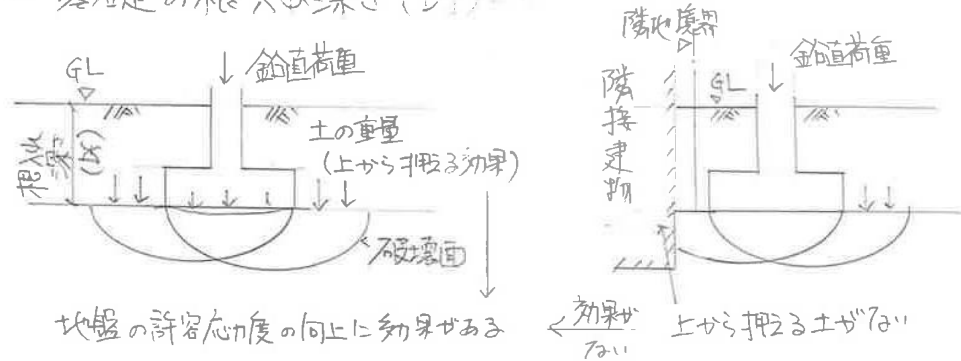 基礎の根入れ深さ(Df)
GL
鉛直荷重
根入れ深さ
(Df)
土の重量
(上から押える効果)
破壊面
地盤の許容応力度の向上に効果がある
隣地境界
隣接建物
GL
鉛直荷重
効果が
ない
上から押える土がない